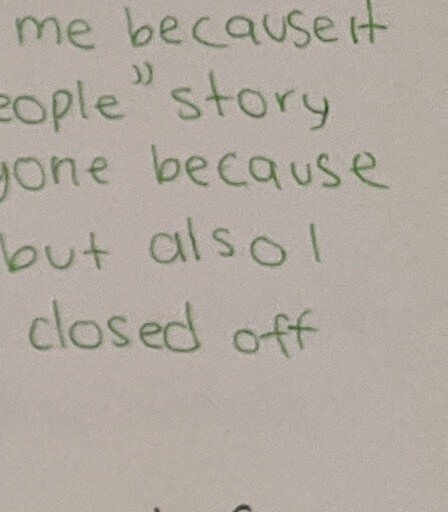 me because it
eople" story
yone because
but also I
closed off